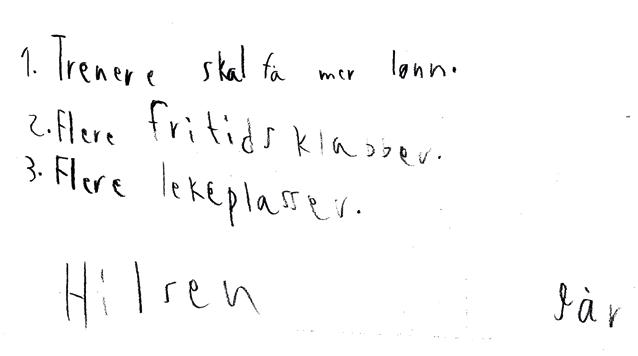 1. Trenere skal få mer lønn.
2. Flere fritids
3. Flere lekeplasser.
Hilsen år